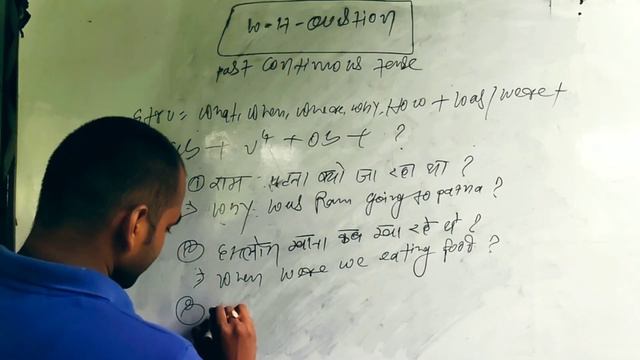 W-H-Question
past continuous tense
Stru = what, when, where, why, How + was/were +
sub + v4 + ob + t ?
① राम पटना क्यों जा रहा था ?
⇒ Why was Ram going to patna ?
② हमलोग खाना कब खा रहे थे ?
⇒ when were we eating food ?
③